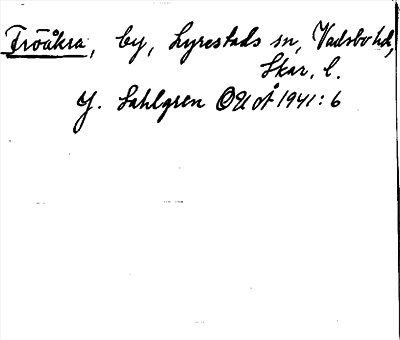 Fröåkra, by, Lyrestads sn, Vadsbo hd,
Skar. l.
J. Sahlgren OUoÅ 1941: 6